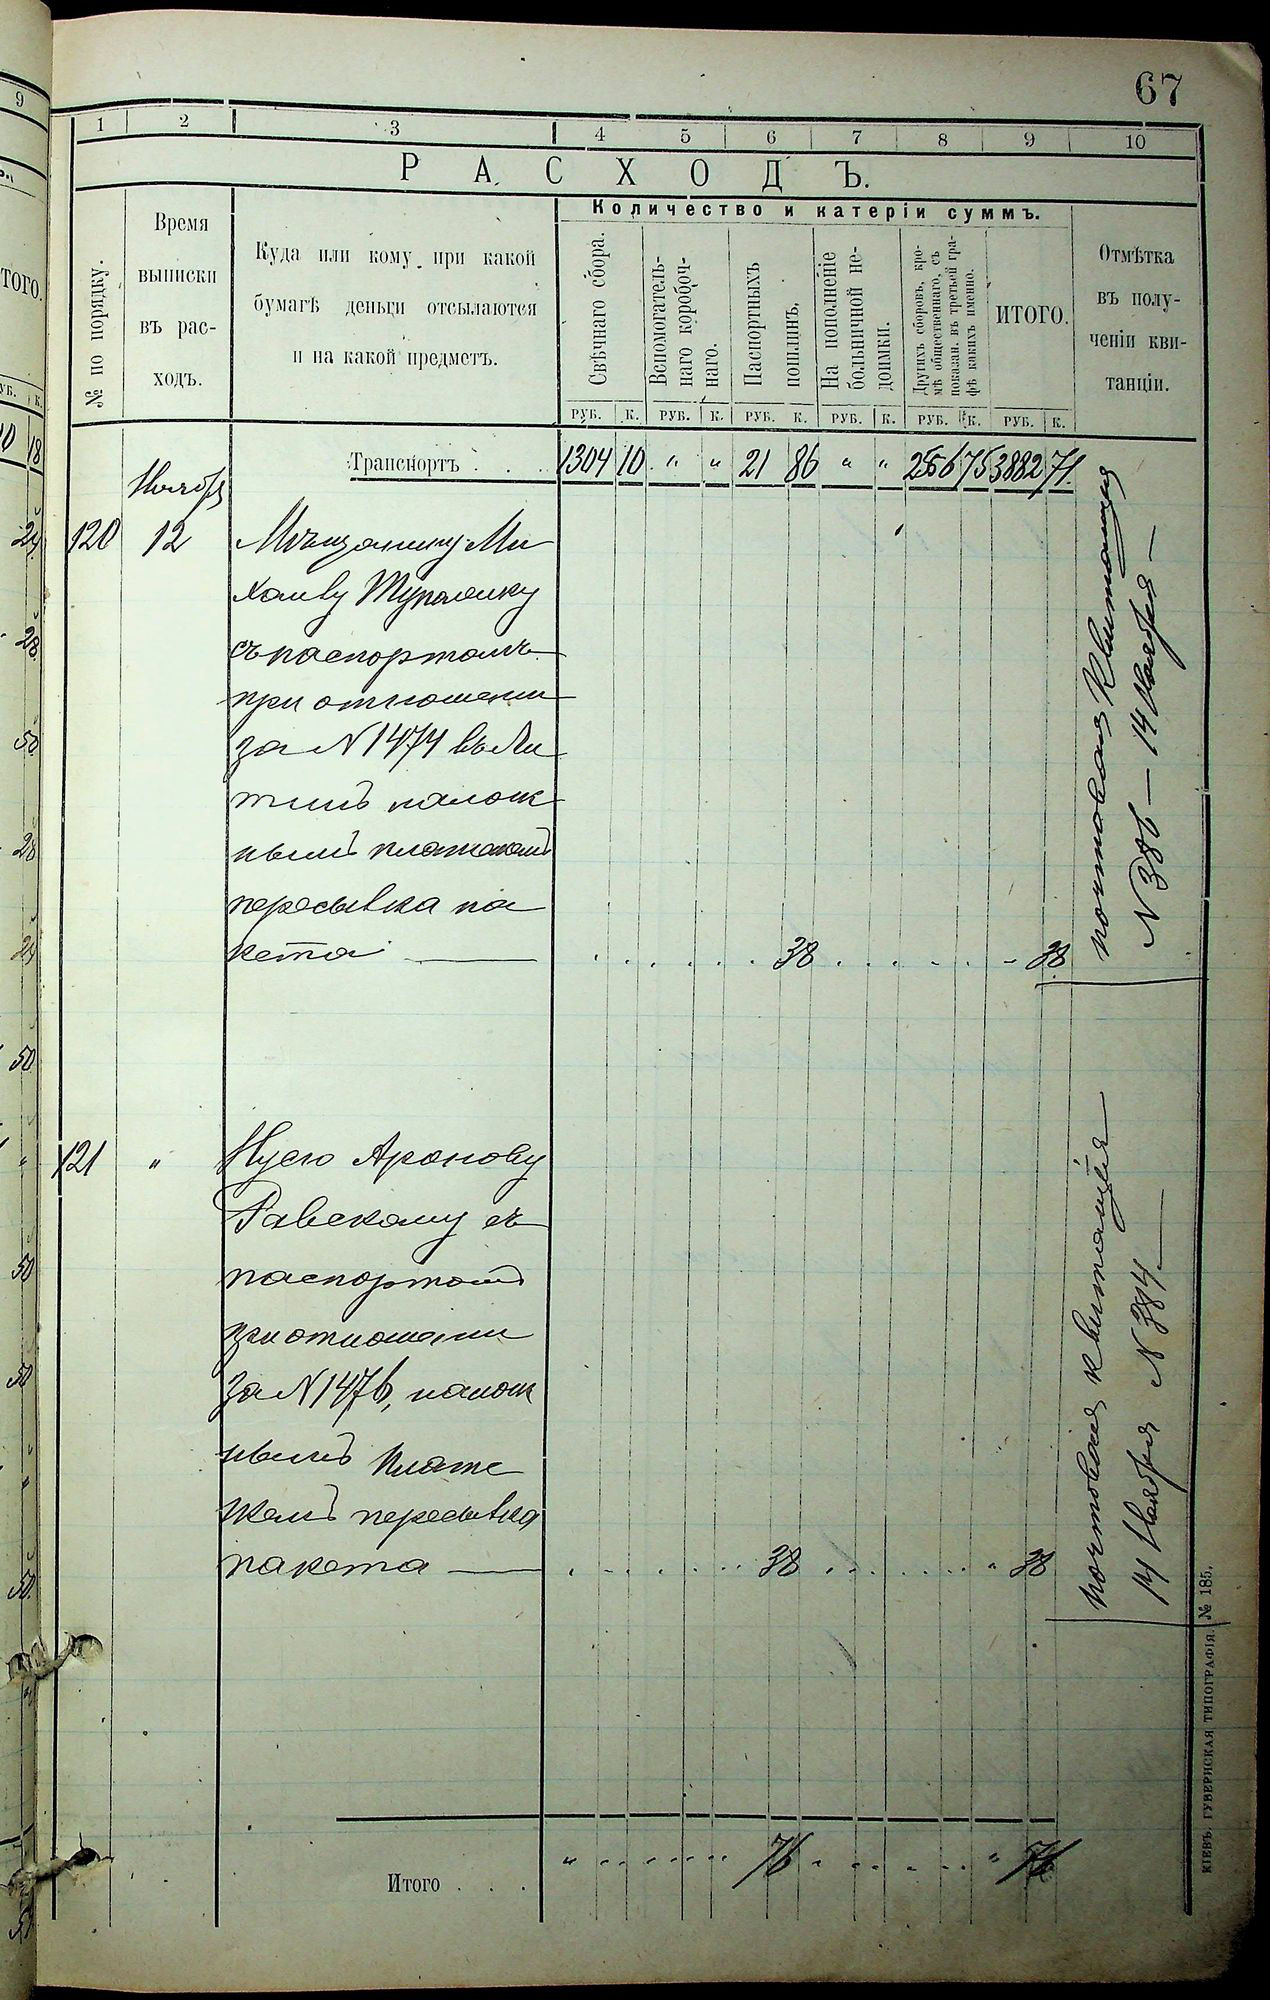 67
1 2 3 4 5 6 7 8 9 10
РАСХОДЪ.
№ по порядку.
Время
выписки
въ рас-
ходъ.
Куда или кому при какой
бумагѣ деньги отсылаются
и на какой предметъ.
Количество и катерiи суммъ.
Свѣчнаго сбора.
Вспомогатель-
наго коробоч-
наго.
Паспортныхъ
пошлинъ.
На пополненiе
больничной не-
доимки.
Другихъ сборовъ, кро-
мѣ общественнаго, съ
показан. въ третьей гра-
фѣ какихъ именно.
ИТОГО.
Отмѣтка
въ полу-
ченiи кви-
танцiи.
РУБ. К. РУБ. К. РУБ. К. РУБ. К. РУБ. К. РУБ. К.
Транспортъ . . . 1304 10 " " 21 86 " " 2556 75 3882 71
Ноябрь
120 12 Мѣщанину Ми
хаилу
съ паспортомъ
при отношенiи
за N 1474 въ Ли
тинъ налож
нымъ платежомъ
пересылка па
кета — 38 38
почтовая Квитанцiя
N 386 — 14 Ноября —
121 " Нусю Аронову
Равскому съ
паспортомъ
при отношенiи
за N 1476, налож
нымъ плате
жемъ пересылка
пакета — 38 38
почтовая квитанцiя
14 Ноября N 384 —
Итого . . . 76 76
КIЕВЪ. ГУБЕРНСКАЯ ТИПОГРАФIЯ. № 185.
9
ТОГО.
УБ. К.
10 18
24
28
50
28
24
50
50
50
50